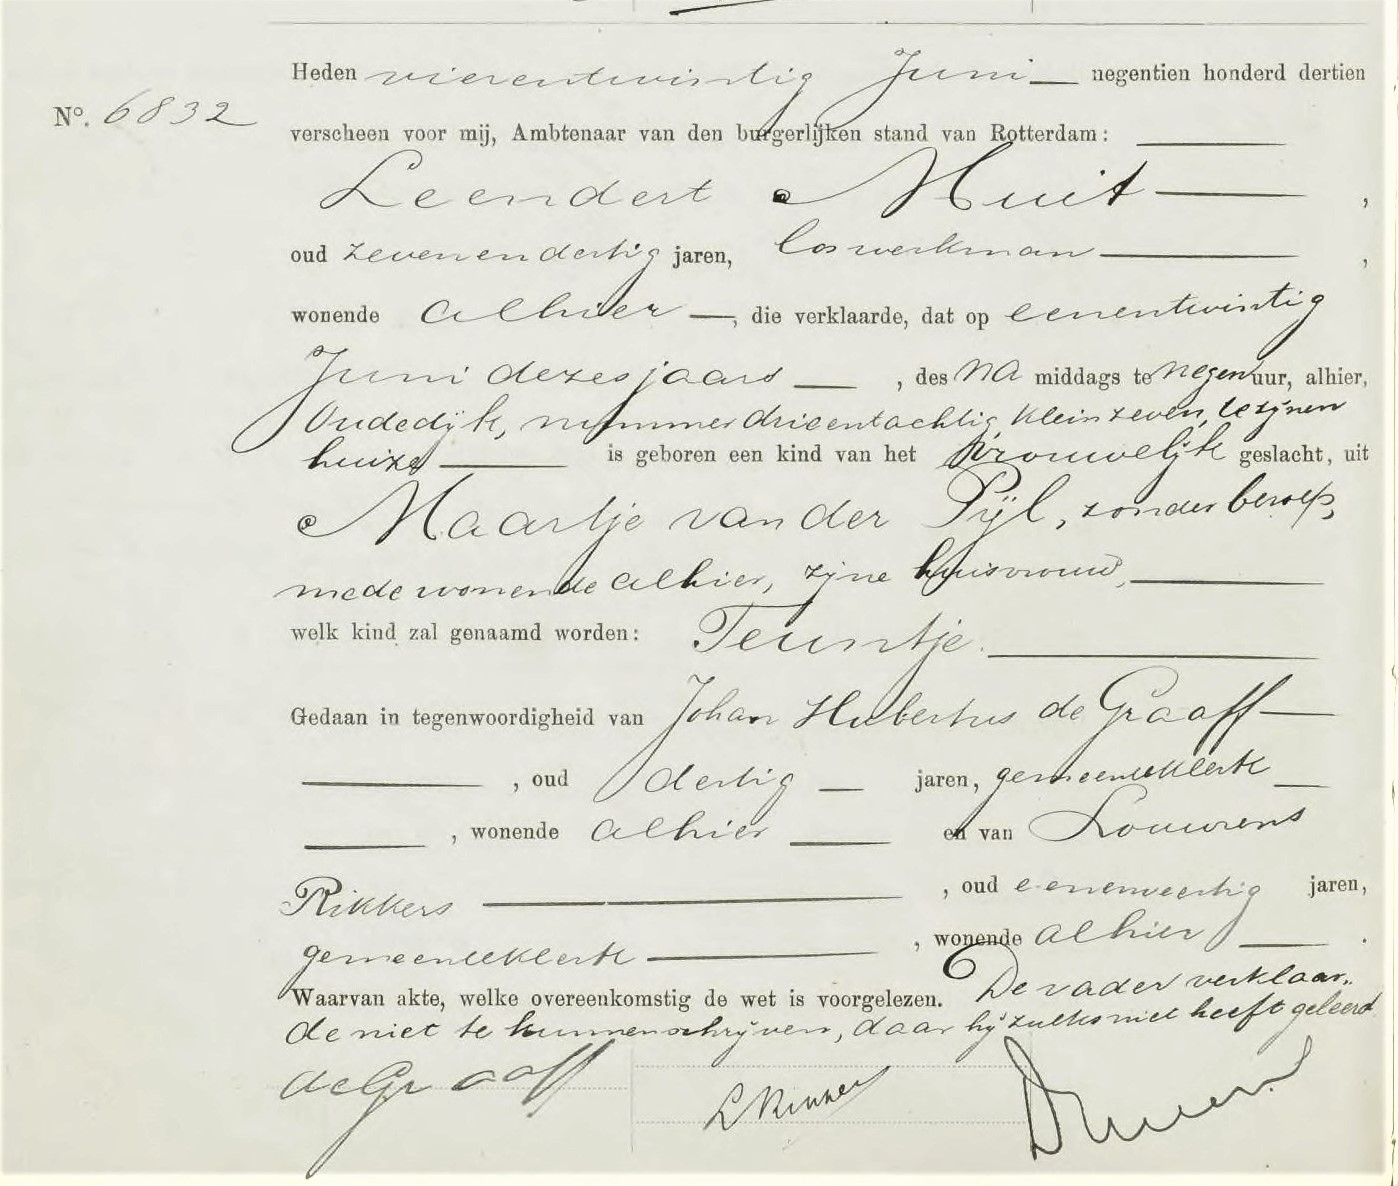 Heden vierentwintig Juni negentien honderd dertien
No. 6832
verscheen voor mij, Ambtenaar van den burgerlijken stand van Rotterdam:
Leendert Muit,
oud zevenendertig jaren, loswerkman,
wonende alhier, die verklaarde, dat op eenentwintig
Juni dezes jaars, des na middags te negen uur, alhier,
Oudedijk, nummer drieentachtig klein zeven, te zijnen
huize is geboren een kind van het vrouwelijk geslacht, uit
Maartje van der Pijl, zonder beroep,
mede wonende alhier, zijne huisvrouw,
welk kind zal genaamd worden: Teuntje.
Gedaan in tegenwoordigheid van Johan Hubertus de Graaff
, oud dertig jaren, gemeenteklerk
, wonende alhier en van Louwrens
Rikkers, oud eenenveertig jaren,
gemeenteklerk, wonende alhier.
Waarvan akte, welke overeenkomstig de wet is voorgelezen. De vader verklaar-
de niet te kunnen schrijven, daar hij zulks niet heeft geleerd
de Graaff L Rikkers